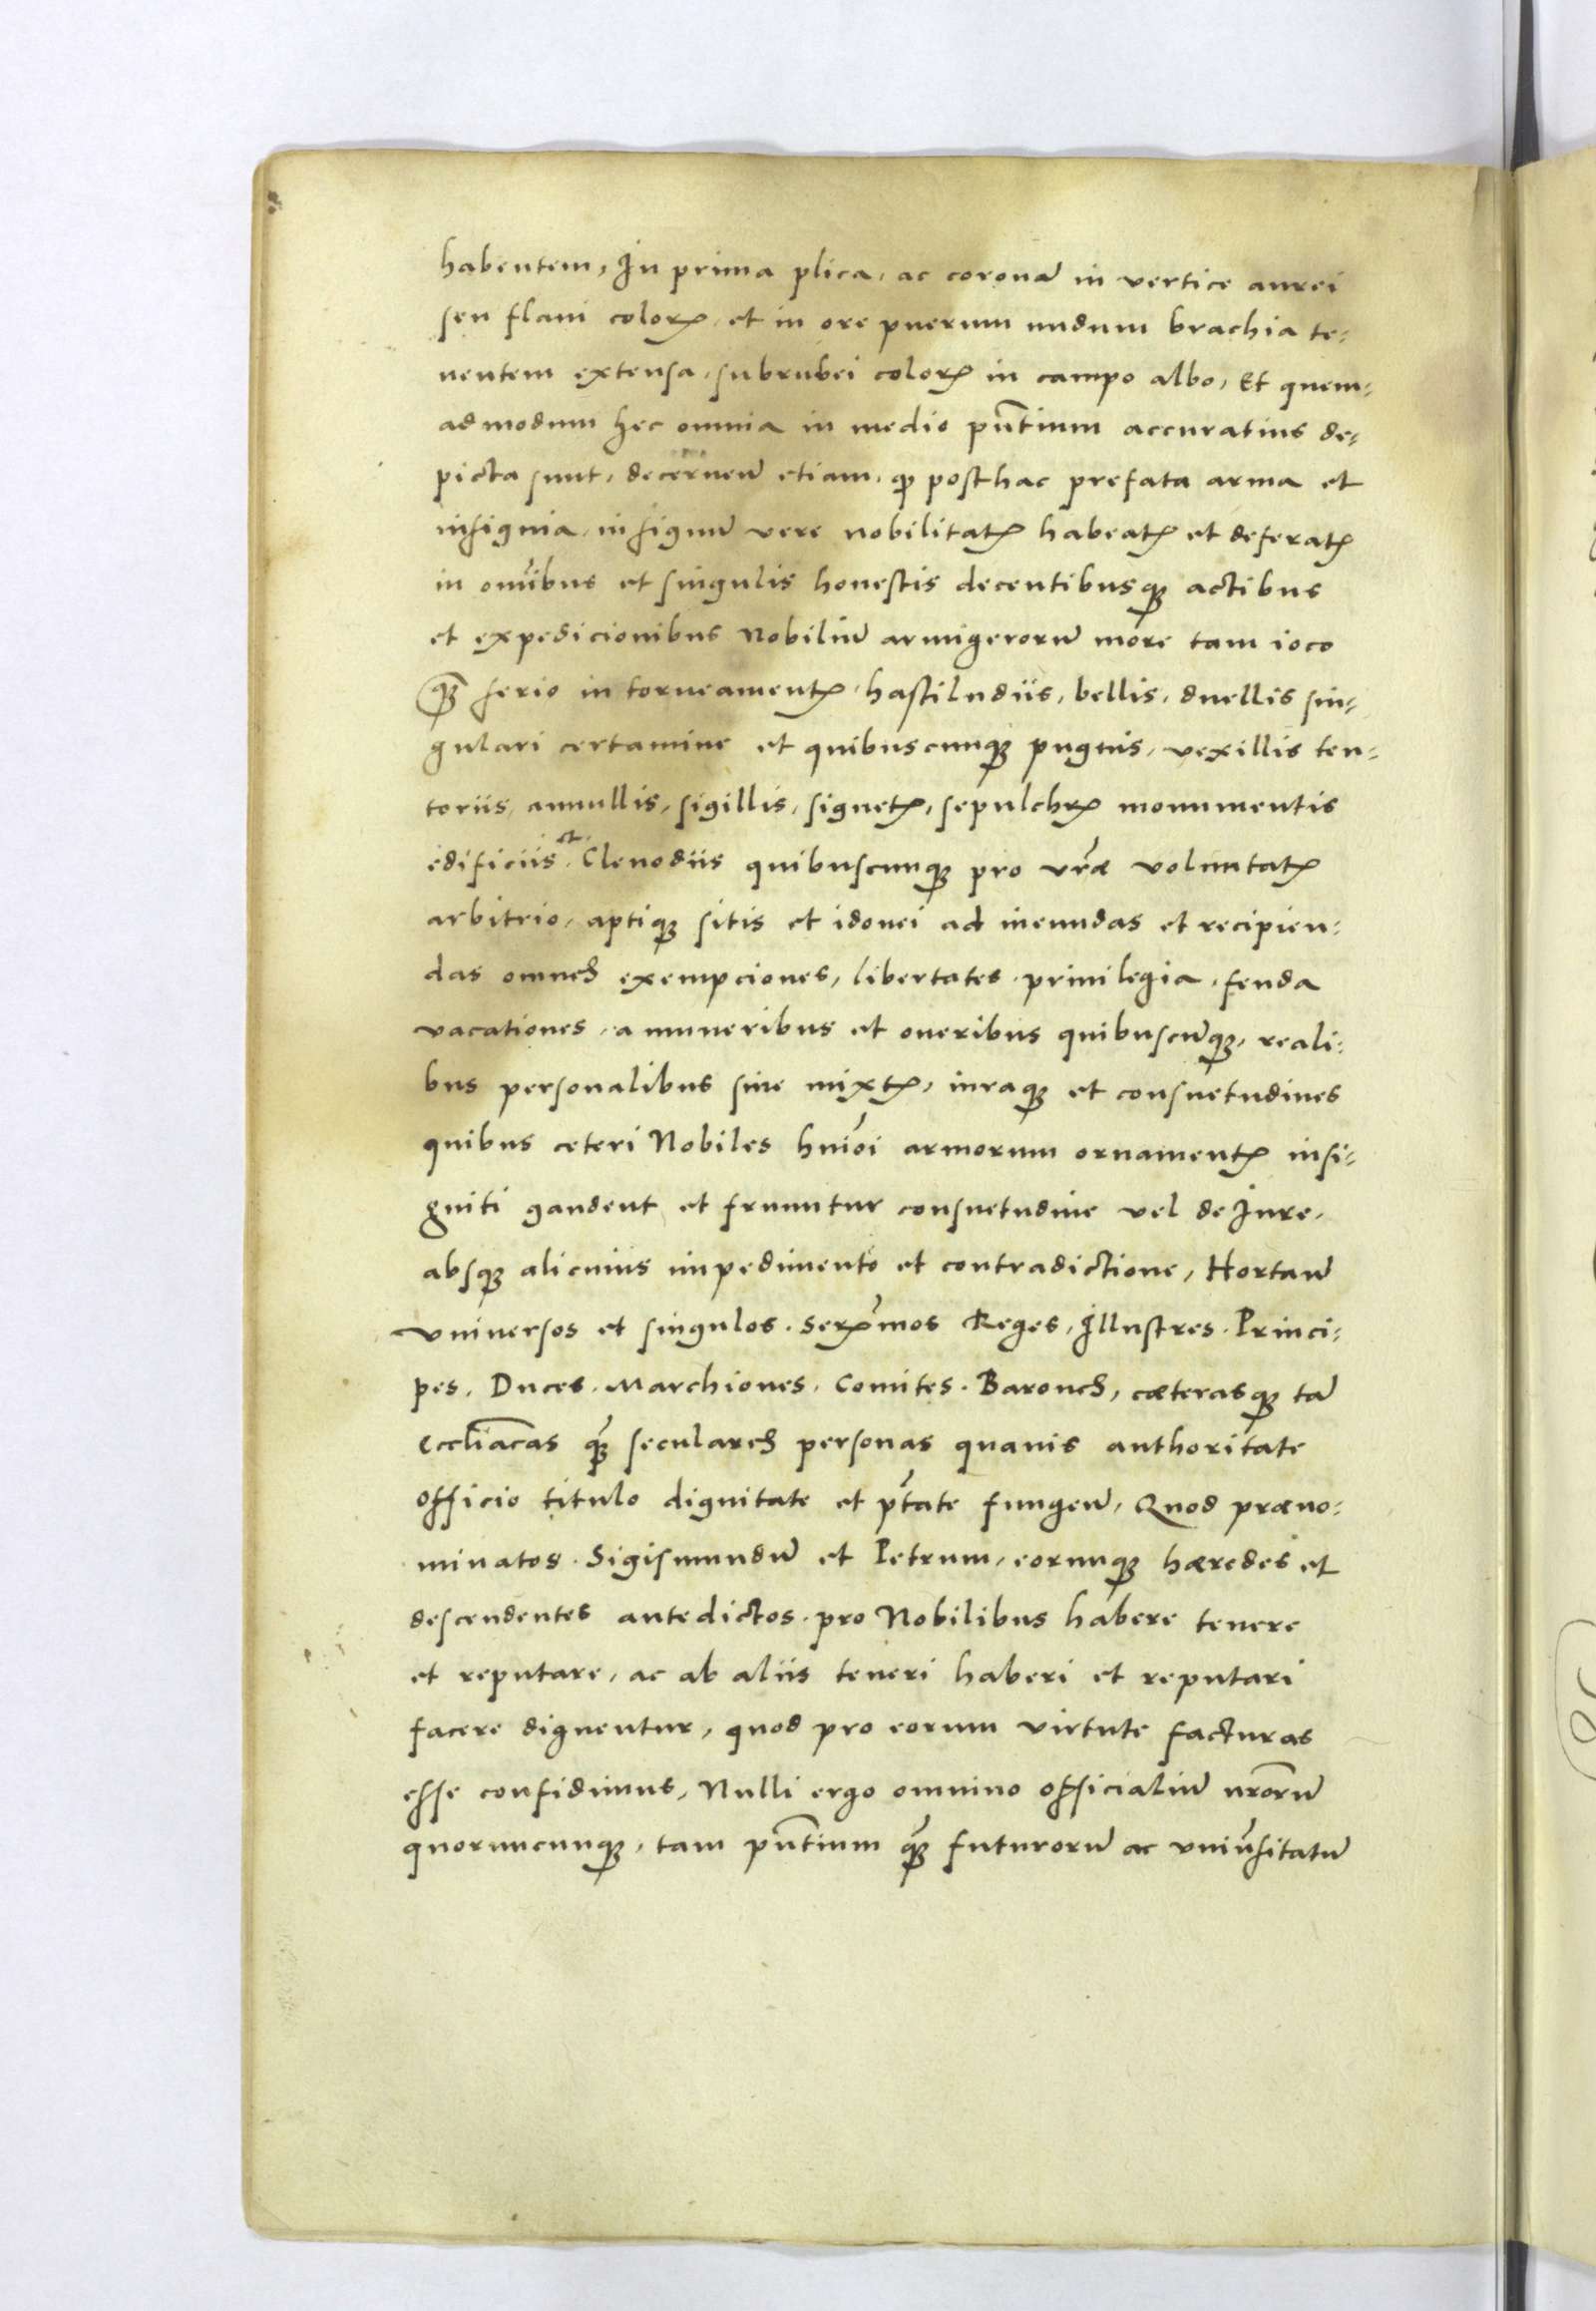 habentem, In prima plica, ac coronā in vertice aurei
seu flaui colorꝭ, et in ore puerum nudum brachia te-
nentem extensa, subrubei colorꝭ in campo albo, Et quem-
admodum hec omnia in medio pn̄tium accuratius de-
picta sunt, decernen̄ etiam, qꝫ posthac prefata arma et
insignia, in signum̄ vere nobilitatꝭ habeatꝭ et deferatꝭ
in om̄ibus et singulis honestis decentibusqꝫ actibus
et expedicionibus Nobiliū armigerorū more tam ioco
qꝫ̄ serio in torneamentꝭ, hastiludiis, bellis, duellis sin-
gulari certamine et quibuscunqꝫ pugnis, vexillis ten-
toriis, annullis, sigillis, signetꝭ, sepulchrꝭ monumentis
edificiis et Clenodiis quibuscunqꝫ pro vr̄æ voluntatꝭ
arbitrio, aptiqꝫ sitis et idonei ad ineundas et recipien-
das omnes exempciones, libertates, priuilegia, feuda
vacationes, a muneribus et oneribus quibuscūqꝫ, reali-
bus personalibus siue mixtꝭ, iuraqꝫ et consuetudines
quibus ceteri Nobiles huiōi armorum ornamentꝭ insi-
gniti gaudent et fruuntur consuetudine vel de Iure,
absqꝫ alicuius impedimento et contradictione, Hortan̄
vniversos et singulos, Serꝭm̄os Reges, Illustres, Princi-
pes, Duces, Marchiones, Comites, Barones, cæterasqꝫ tā
Eccliācas qꝫ̄ seculares personas quauis authoritate
officio titulo dignitate et pt̄ate fungen̄, Quod præno-
minatos, Sigismundū et Petrum, eorumqꝫ hæredes et
descendentes antedictos, pro Nobilibus habere tenere
et reputare, ac ab aliis teneri haberi et reputari
facere dignentur, quod pro eorum virtute facturas
esse confidimus, Nulli ergo omnino officialiū nr̄orū
quorumcunqꝫ, tam pn̄tium qꝫ̄ futurorū ac vniūsitatū